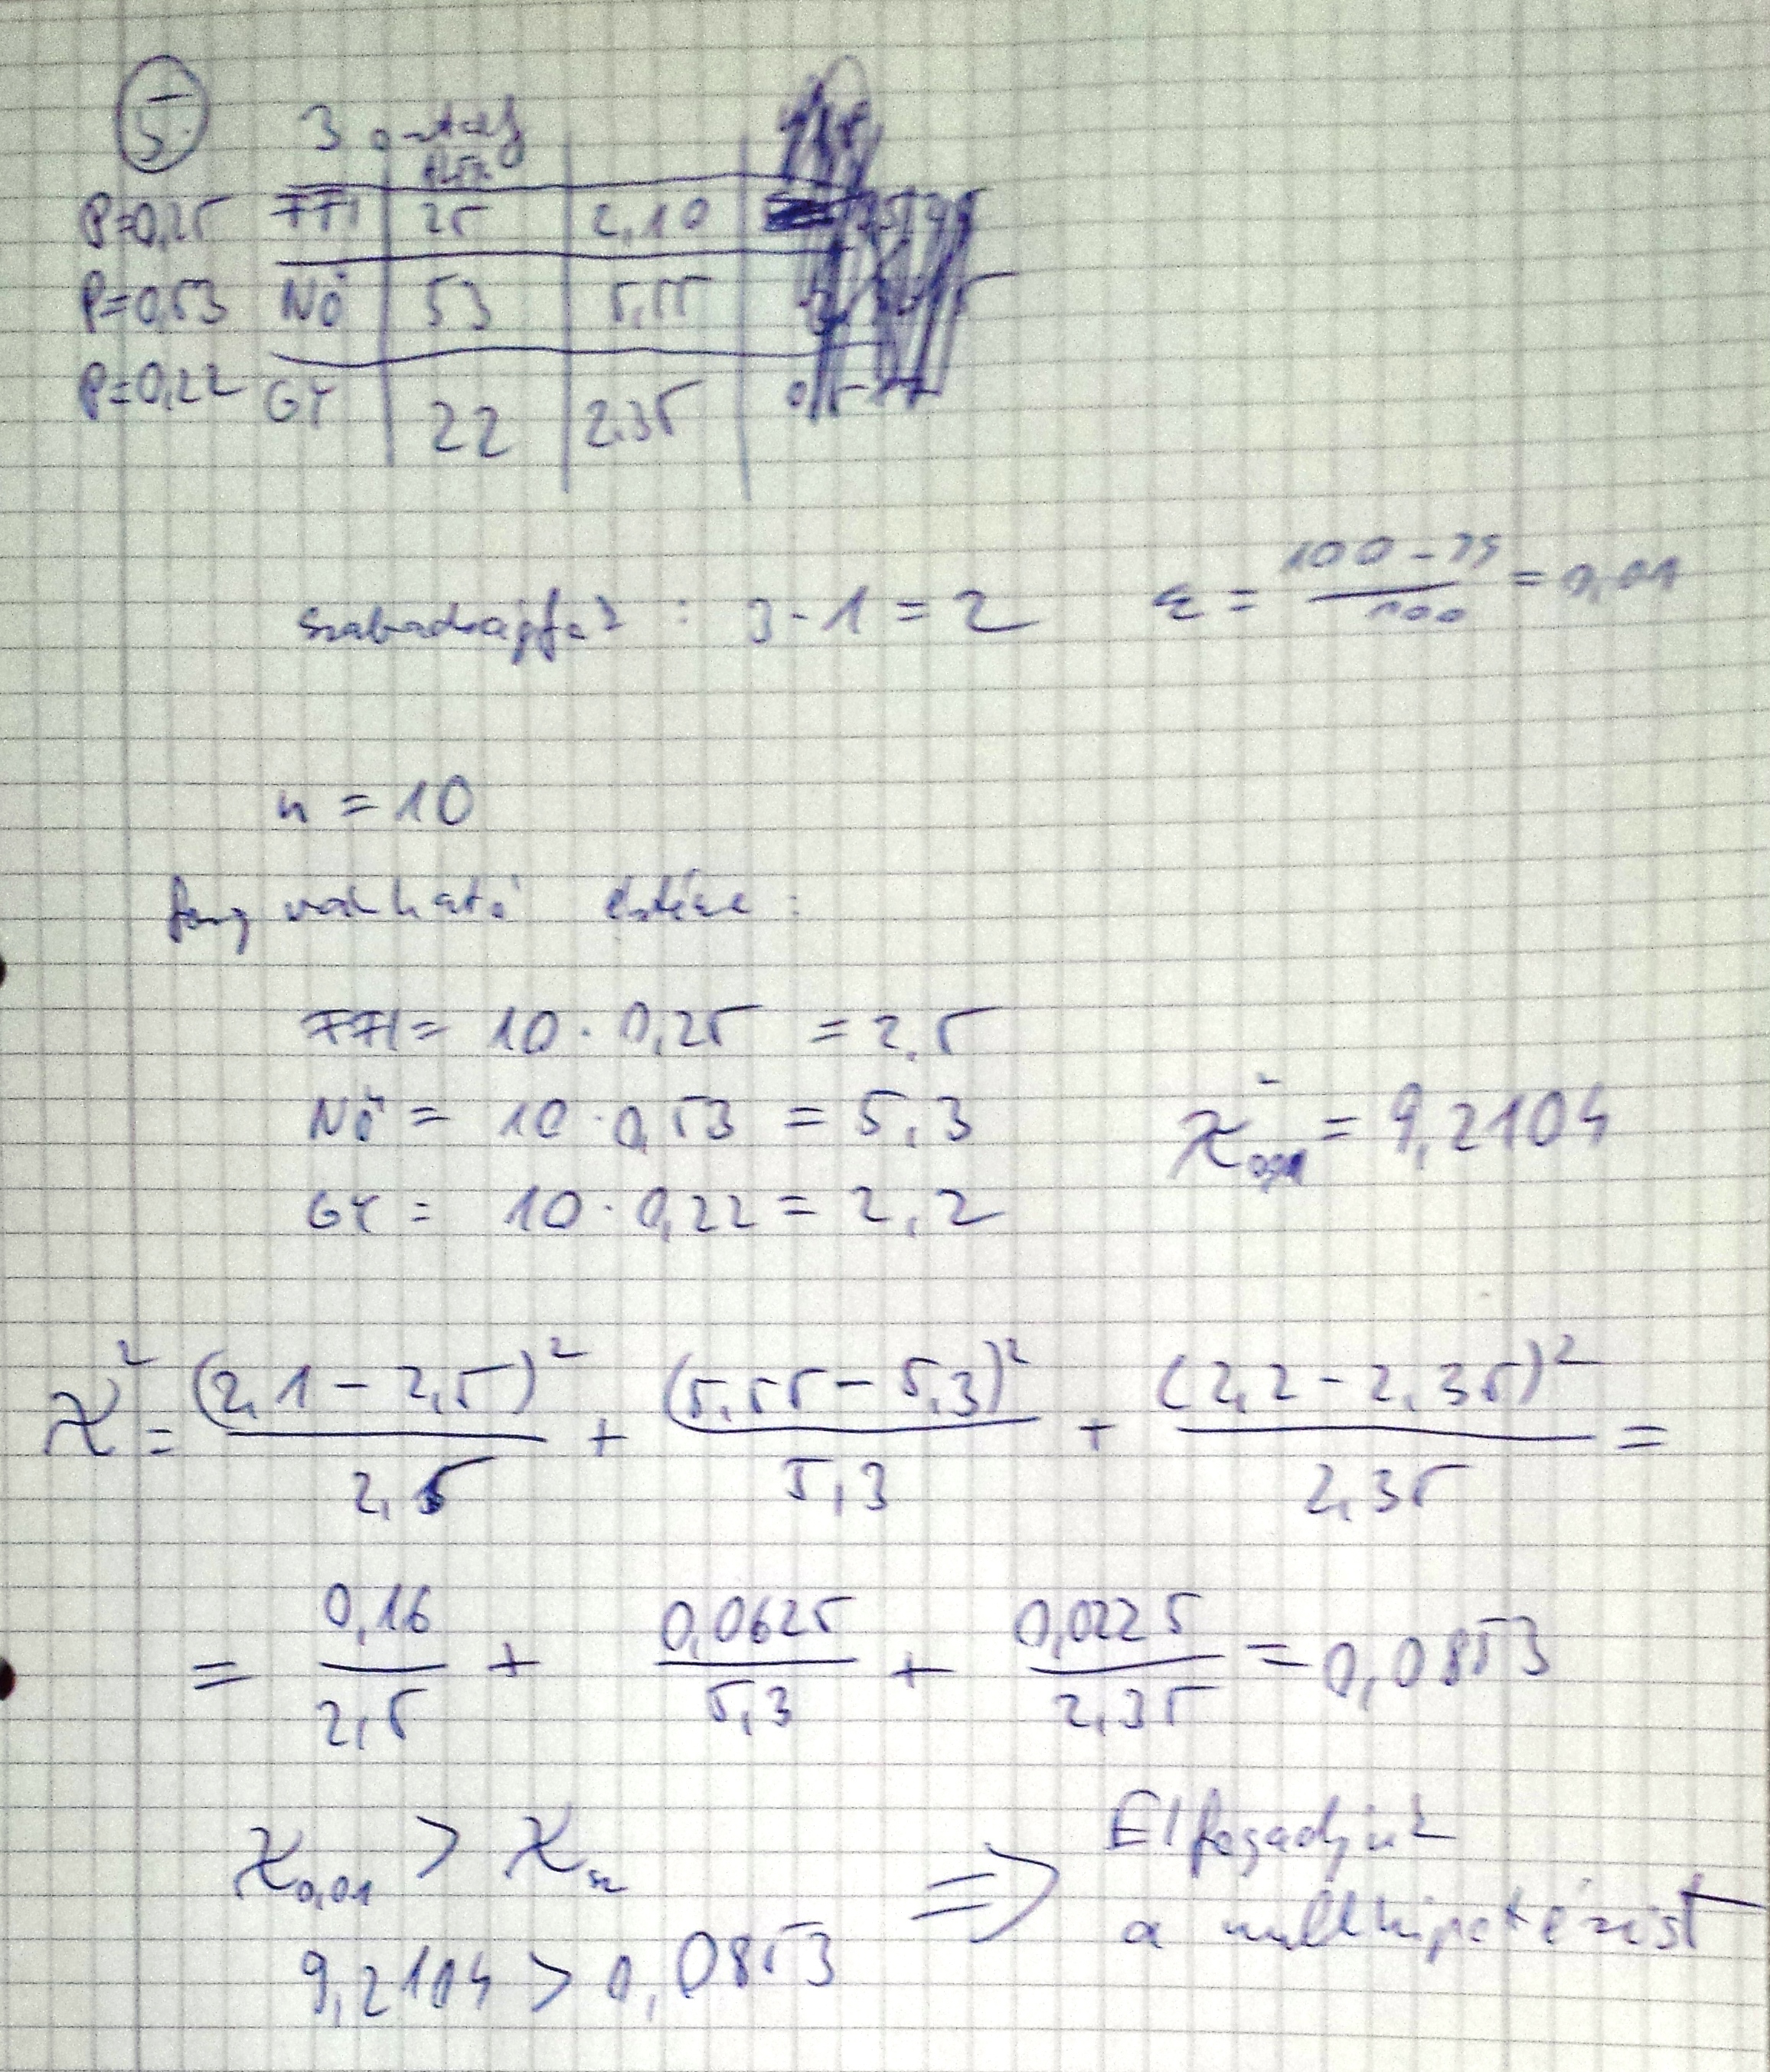 5. 3 osztály
P=0,25 FFI 25 2,10
P=0,53 NŐ 53 5,55
P=0,22 GY 22 2,35
szabadságfok : 3-1=2 ε = (100-99)/100 = 0,01
n = 10
várható értéke :
FFI = 10·0,25 = 2,5
NŐ = 10·0,53 = 5,3
GY = 10·0,22 = 2,2
χ²0,01 = 9,2104
χ² = (2,1-2,5)²/2,5 + (5,55-5,3)²/5,3 + (2,2-2,35)²/2,35 =
= 0,16/2,5 + 0,0625/5,3 + 0,0225/2,35 = 0,0853
χ0,01 > χsz ⇒ Elfogadjuk
a nullhipotézist
9,2104 > 0,0853